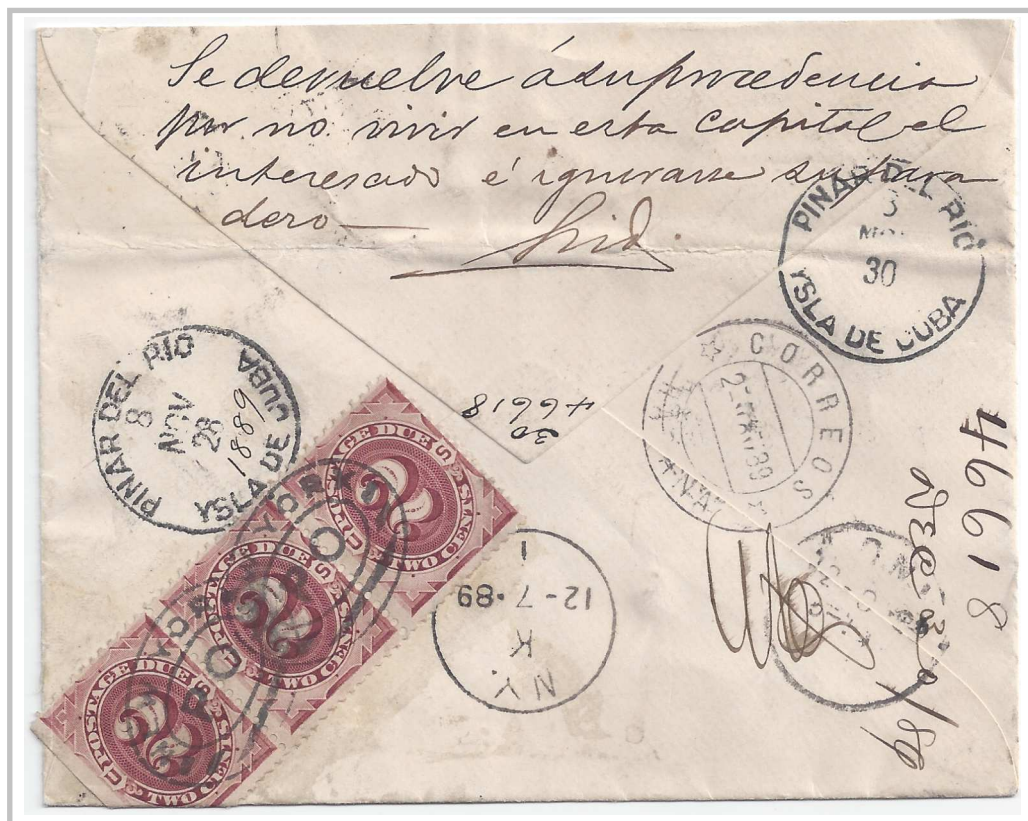 Se devuelve á su procedencia
por no vivir en esta capital el
interesado é ignorarse su para
dero
PINAR DEL RIO
3
30
YSLA DE CUBA
PINAR DEL RIO
8
NOV
28
1889
YSLA DE CUBA
30
46618
CORREOS
N.Y.
K
12-7-89
1
46618
Dec 30/89
POSTAGE DUE
2
TWO CENTS
POSTAGE DUE
2
TWO CENTS
POSTAGE DUE
2
TWO CENTS